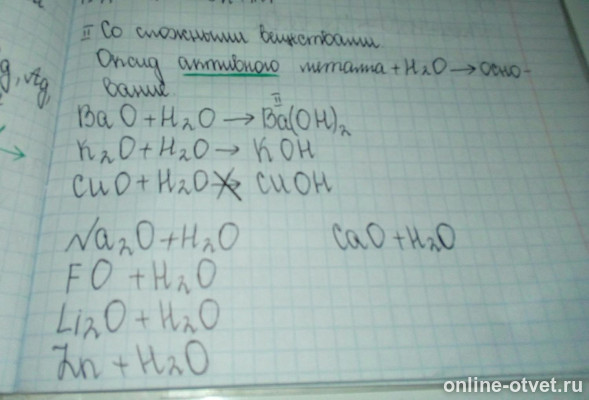 II Со сложными веществами
Оксид активного металла + H₂O → осно-
вание
BaO + H₂O → Ba(OH)₂
II
K₂O + H₂O → KOH
CuO + H₂O ↛ CuOH
Na₂O + H₂O
CaO + H₂O
FO + H₂O
Li₂O + H₂O
Zn + H₂O
g, Ag,
online-otvet.ru